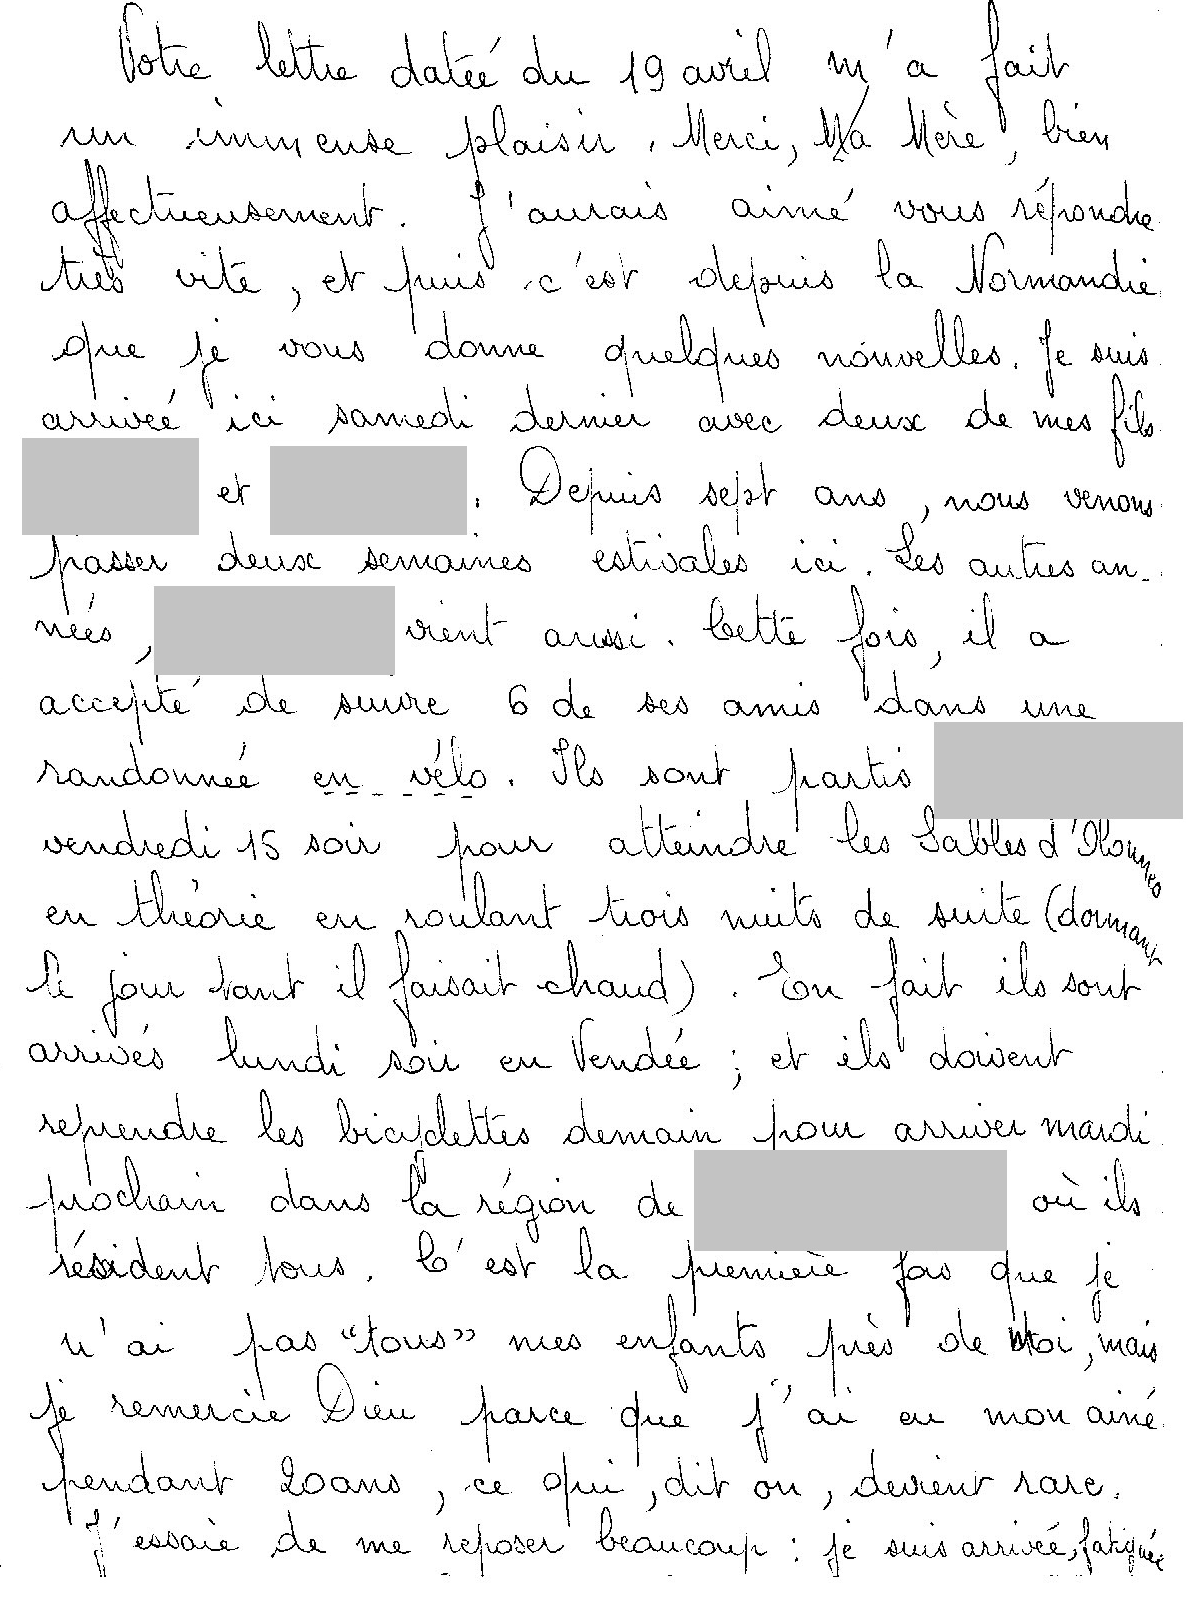 Votre lettre datée du 19 avril m'a fait
un immense plaisir. Merci, Ma Mère, bien
affectueusement. J'aurais aimé vous répondre
très vite, et puis c'est depuis la Normandie
que je vous donne quelques nouvelles. Je suis
arrivée ici samedi dernier avec deux de mes fils
et . Depuis sept ans, nous venons
passer deux semaines estivales ici. Les autres an-
nées, vient aussi. Cette fois, il a
accepté de suivre 6 de ses amis dans une
randonnée en vélo. Ils sont partis
vendredi 15 soir pour atteindre les Sables d'Olonnes
en théorie en roulant trois nuits de suite (dormant
le jour tant il faisait chaud). En fait ils sont
arrivés lundi soir en Vendée ; et ils doivent
reprendre les bicyclettes demain pour arriver mardi
prochain dans la région de où ils
résident tous. C'est la première fois que je
n'ai pas "tous" mes enfants près de moi, mais
je remercie Dieu parce que j'ai eu mon ainé
pendant 20 ans, ce qui, dit on, devient rare.
J'essaie de me reposer beaucoup : je suis arrivée, fatiguée